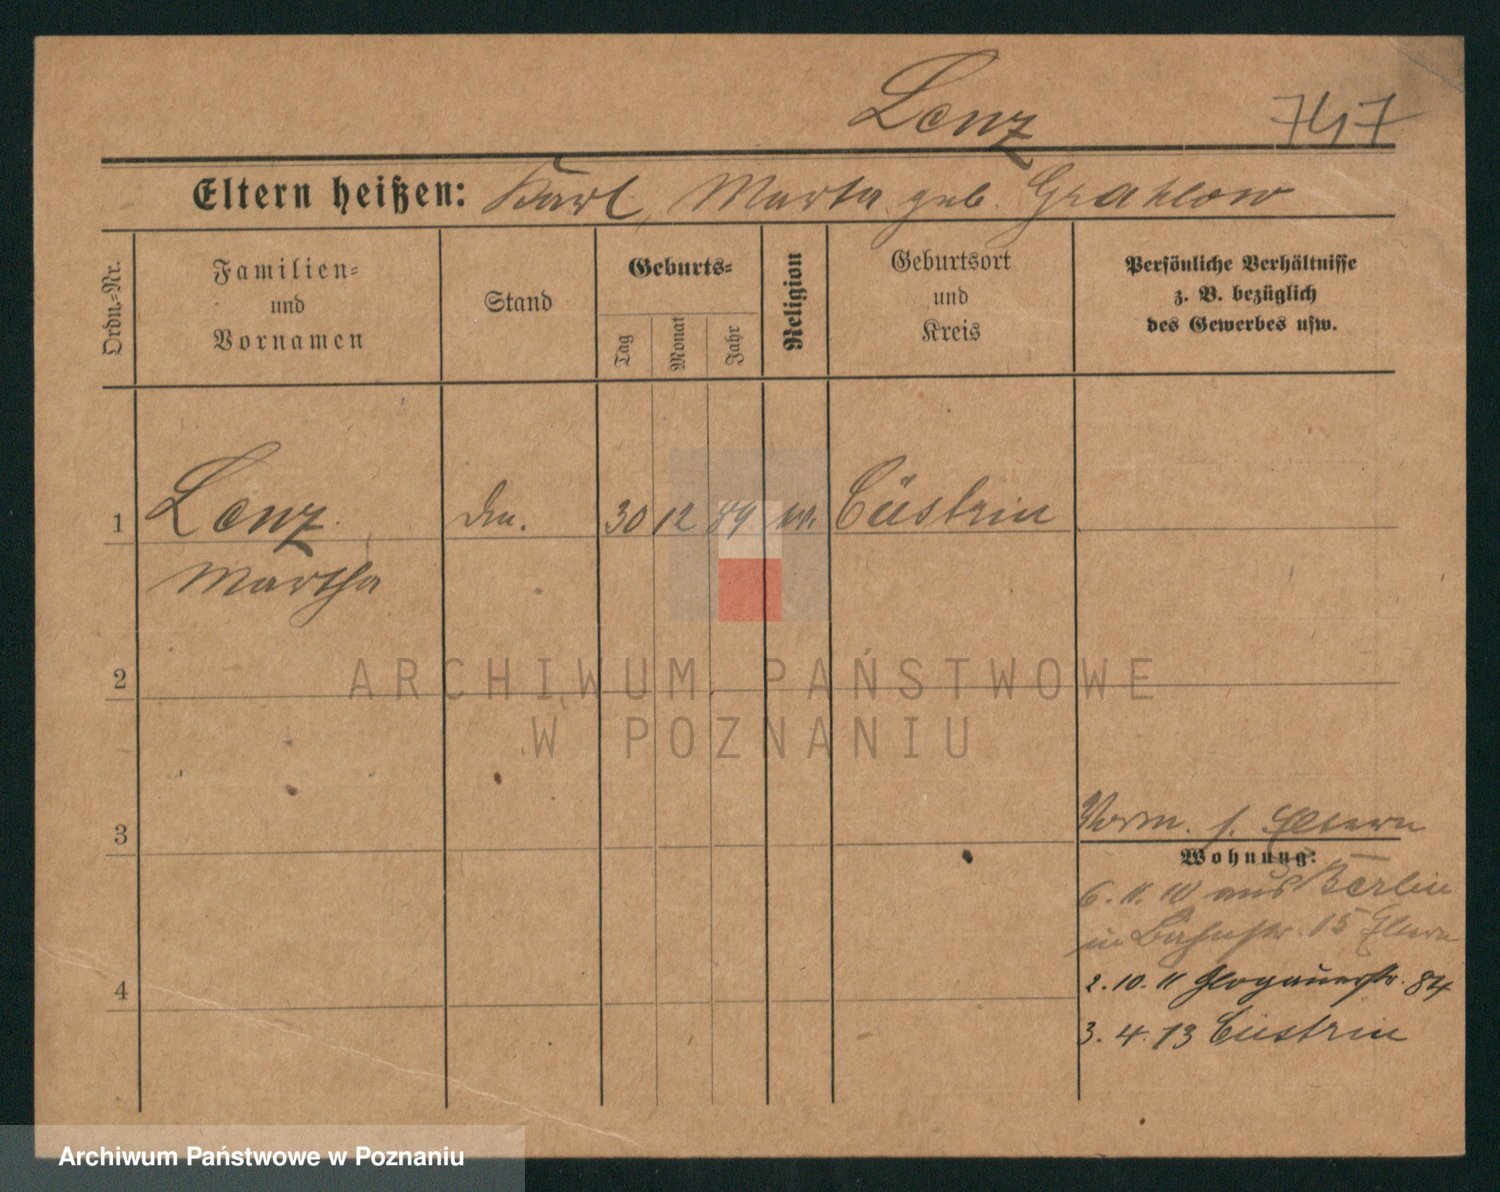 Lenz 747
Eltern heißen: Karl, Marta geb. Grahlow
Ordn.-Nr.
Familien-
und
Vornamen
Stand
Geburts-
Tag
Monat
Jahr
Religion
Geburtsort
und
Kreis
Persönliche Verhältnisse
z. B. bezüglich
des Gewerbes usw.
1 Lenz 30 12 89 ev. Cüstrin
Martha
2
ARCHIWUM PAŃSTWOWE
W POZNANIU
3
Vorm. s. Eltern
Wohnung:
6. 11. 10 aus Berlin
in Bahnstr. 15 Eltern
4
2. 10. 11 Glogauerstr. 84
3. 4. 13 Cüstrin
Archiwum Państwowe w Poznaniu